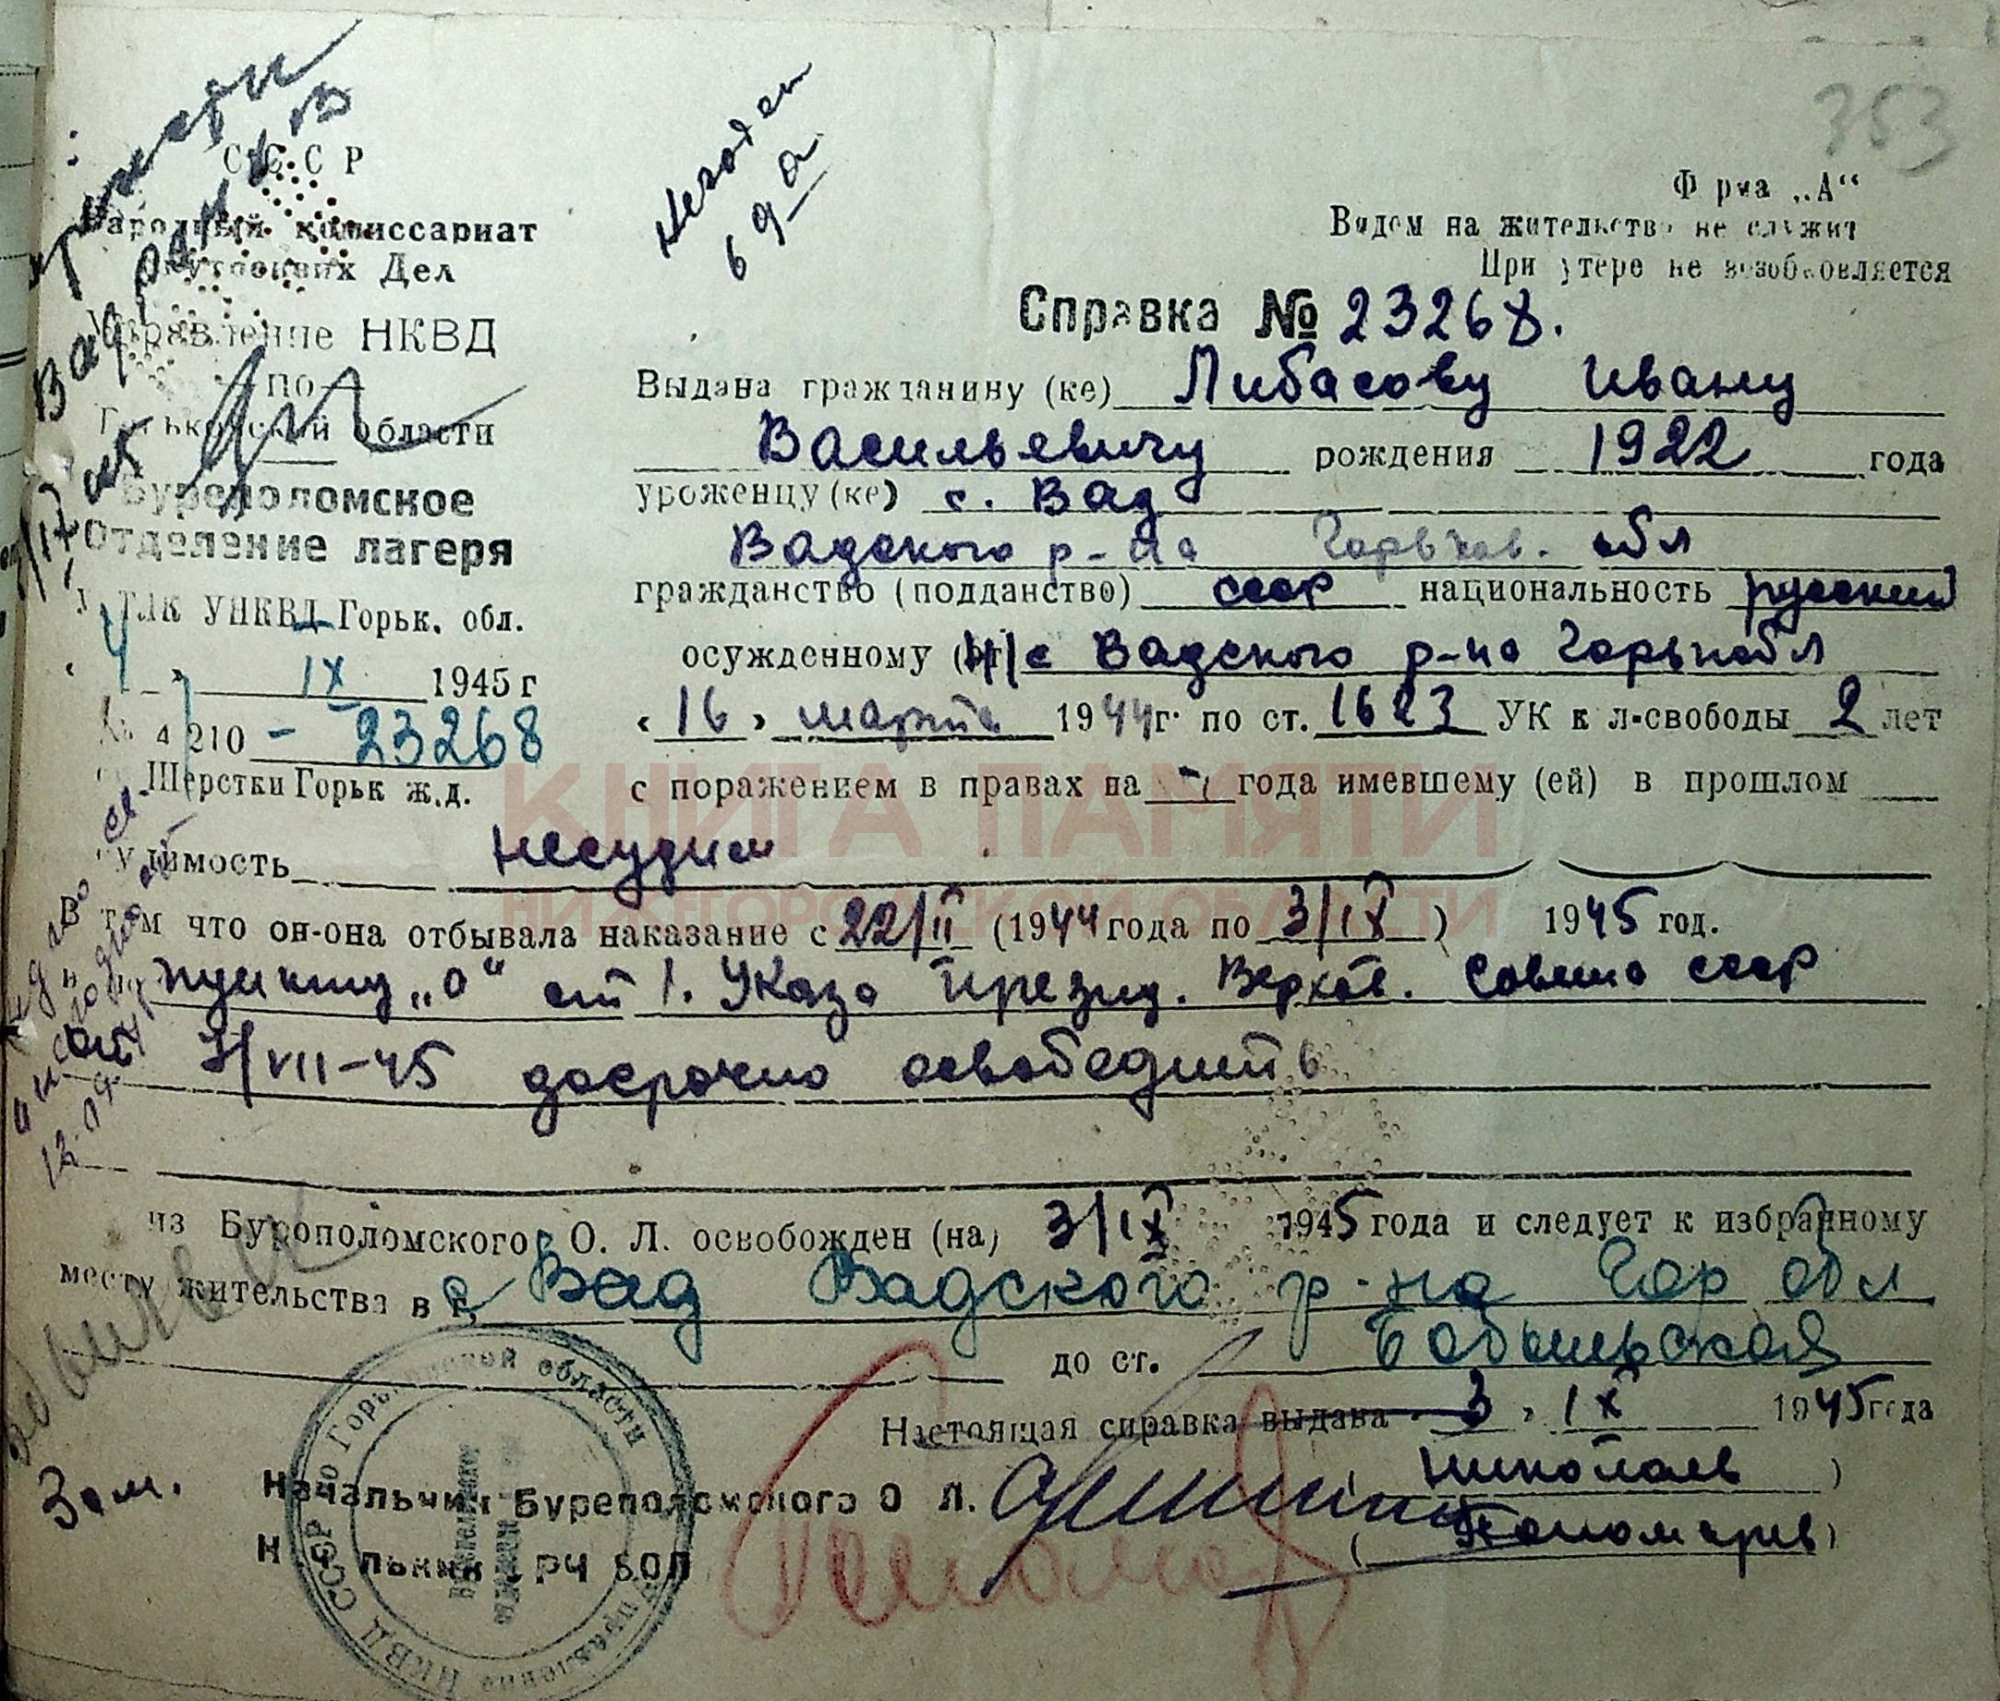 353
Негоден
69а
СССР
Народный комиссариат
Внутренних Дел
Управление НКВД
по
Горьковской области
Буреполомское
Отделение лагеря
УНКВД Горьк. обл.
4 IX 1945 г
№ 4/210 - 23268
Шерстки Горьк ж.д.
Форма „А“
Видом на жительство не служит
При утере не возобновляется
Справка № 23268.
Выдана гражданину (ке) Либасову Ивану
Васильевичу рождения 1922 года
уроженцу (ке) с. Вад
Вадского р-на Горьков. обл
гражданство (подданство) СССР национальность русский
осужденному (ой) н/с Вадского р-на Горьк обл
« 16 » марта 1944 г. по ст. 162 УК к л-свободы 2 лет
с поражением в правах на — года имевшему (ей) в прошлом
судимость несудим
КНИГА ПАМЯТИ
НИЖЕГОРОДСКОЙ ОБЛАСТИ
В том что он-она отбывала наказание с 22/II (1944 года по 3/IX) 1945 год.
пункту „а“ ст 1. Указа Презид. Верхов. Совета СССР
от 7/VII-45 досрочно освободить
из Бурополомского О. Л. освобожден (на) 3/IX 1945 года и следует к избранному
месту жительства в г. с Вад Вадского р-на Гор обл
до ст. Бобыльская
Настоящая справка выдана 3 » IX 1945 года
Зам. Начальник Буреполомского О Л. (Николаев)
Начальник УРЧ БОЛ (Пономарев)
Управление НКВД СССР по Горьковской области